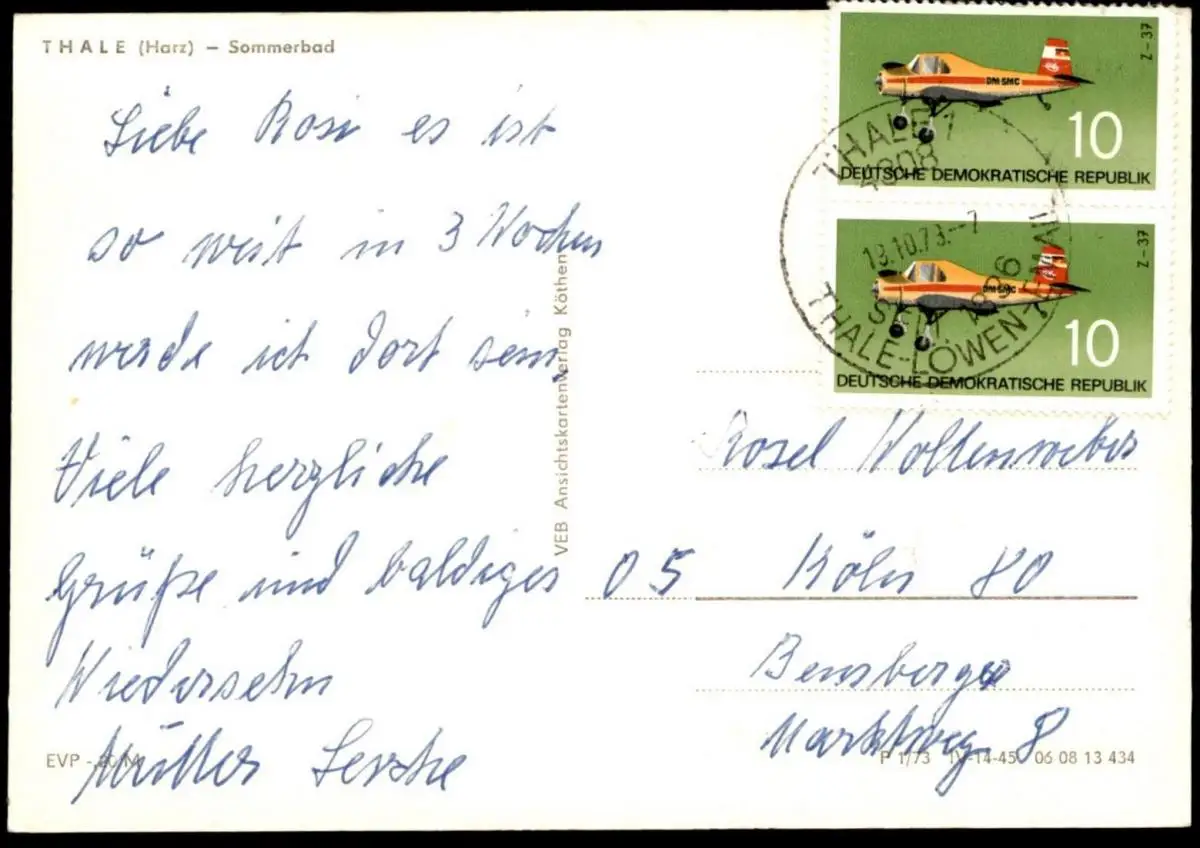 THALE (Harz) – Sommerbad
Liebe Rosi es ist
so weit in 3 Wochen
werde ich dort sein,
Viele herzliche
Grüße und baldiges
Wiedersehn
Müller
EVP -,20 M
VEB Ansichtskartenverlag Köthen
Z-37
DM-SMC
10
DEUTSCHE DEMOKRATISCHE REPUBLIK
Z-37
DM-SMC
10
DEUTSCHE DEMOKRATISCHE REPUBLIK
THALE 1
4308
18.10.73.-7
SEIT 1836
THALE-LÖWEN-EMAIL
Rosel Wollenweber
05 Köln 80
Bensberger
Marktweg 8
P 1/73 IV-14-45 06 08 13 434